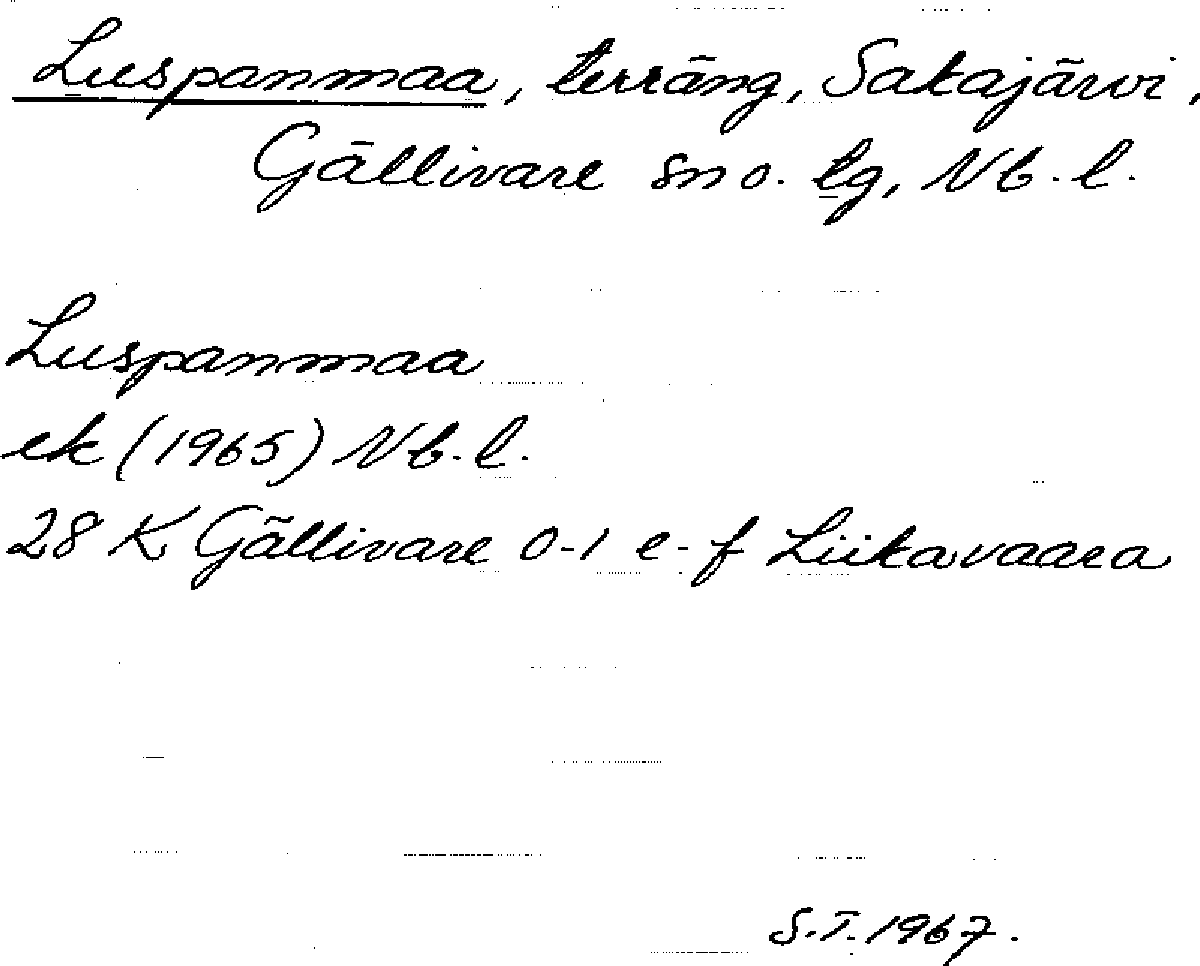 Luspanmaa, terräng, Sakajärvi,
Gällivare sn o. lg, Nb. l.
Luspanmaa
ek (1965) Nb. l.
28 K Gällivare 0-1 e-f Liikavaara
S.T. 1967.